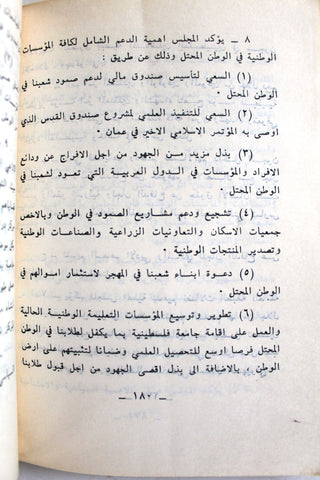 ٨ ـ يؤكد المجلس اهمية الدعم الشامل لكافة المؤسسات
الوطنية في الوطن المحتل وذلك عن طريق :
(١) السعي لتأسيس صندوق مالي لدعم صمود شعبنا في
الوطن المحتل .
(٢) السعي للتنفيذ العلمي لمشروع صندوق القدس الذي
أوصى به المؤتمر الاسلامي الاخير في عمان .
(٣) بذل مزيد من الجهود من اجل الافراج عن ودائع
الافراد والمؤسسات في الدول العربية التي تعود لشعبنا في
الوطن المحتل .
(٤) تشجيع ودعم مشاريع الصمود في الوطن وبالاخص
جمعيات الاسكان والتعاونيات الزراعية والصناعات الوطنية
وتصدير المنتجات الوطنية .
(٥) دعوة ابناء شعبنا في المهجر لاستثمار اموالهم في
الوطن المحتل .
(٦) تطوير وتوسيع المؤسسات التعليمة الوطنية الحالية
والعمل على إقامة جامعة فلسطينية بما يكفل لطلابنا في الوطن
المحتل فرصا اوسع للتحصيل العلمي وضمانا لتثبيتهم على ارض
الوطن . بالاضافة الى بذل اقصى الجهود من اجل قبول طلابنا
ـ ١٨٠ ـ